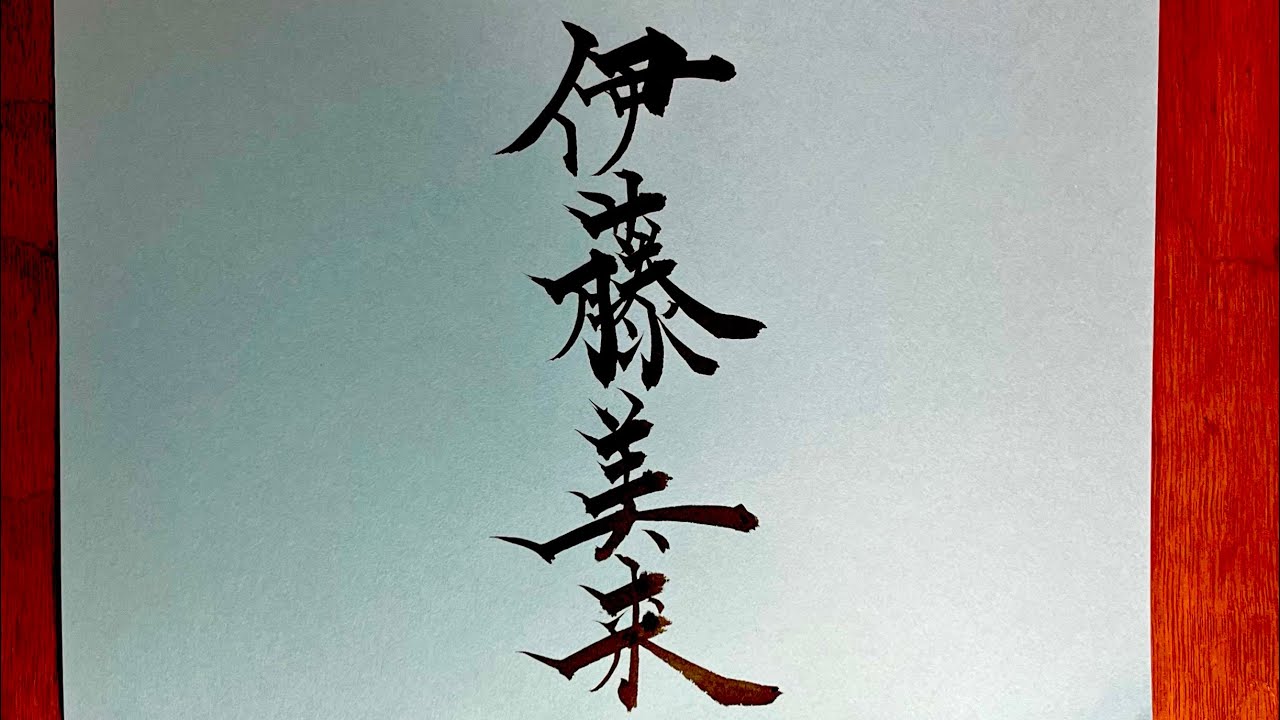 伊藤美来